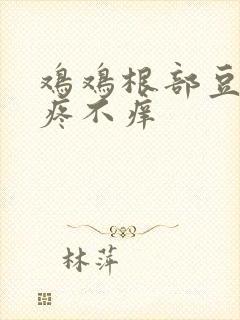 鸡鸡根部豆
疼不痒
林萍